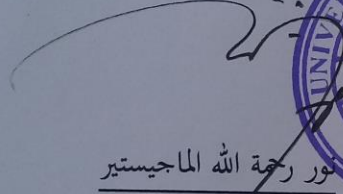 UNIVE
نور رحمة الله الماجيستير